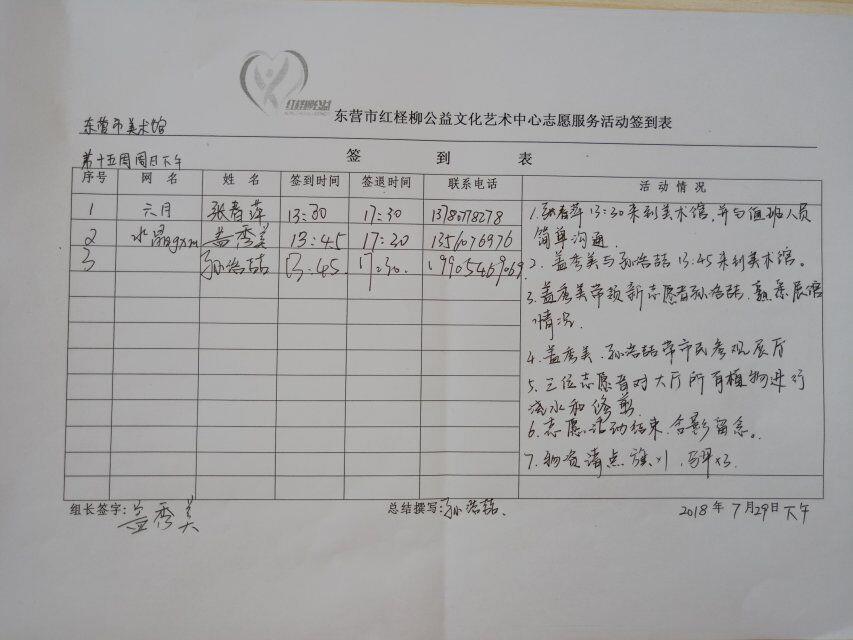 红柽柳公益
东营市红柽柳公益文化艺术中心志愿服务活动签到表
东营市美术馆
签 到 表
第十五周周日下午
序号 网名 姓名 签到时间 签退时间 联系电话 活动情况
1 六月 张春萍 13:30 17:30
2 水晶gxm 盖秀美 13:45 17:20
3 孙浩喆 13:45 17:30 19905469069
1. 张春萍13:30来到美术馆,并与值班人员
简单沟通.
2. 盖秀美与孙浩喆13:45来到美术馆。
3. 盖秀美带领新志愿者孙浩喆,熟悉展馆
情况.
4. 盖秀美、孙浩喆带市民参观展厅
5. 三位志愿者对大厅所有植物进行
浇水和修剪.
6. 志愿活动结束.合影留念。
7. 物资清点 旗×1,马甲×3.
组长签字: 盖秀美 总结撰写: 孙浩喆. 2018年7月29日下午